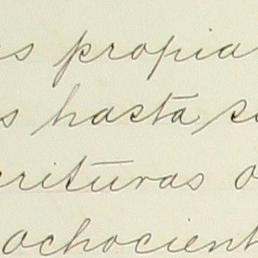 s propia
s hasta s
crituras o
ochocient